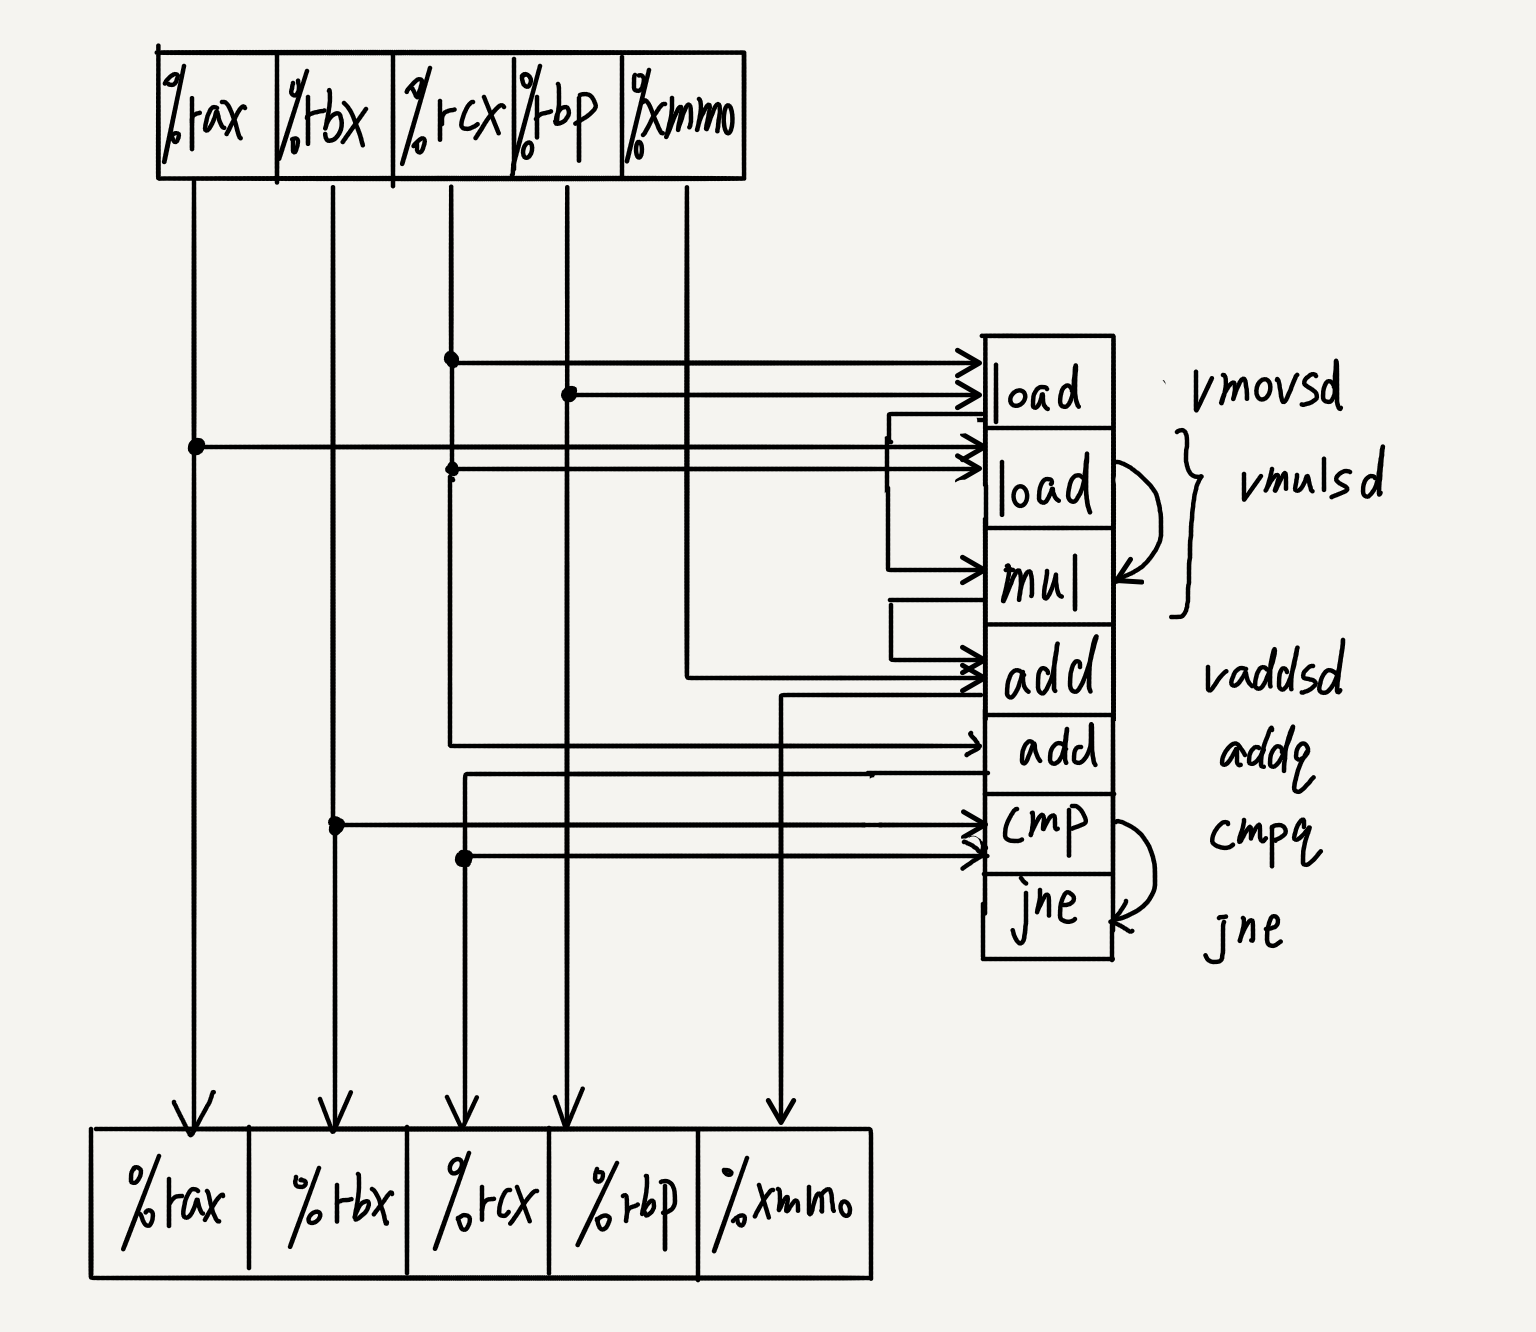 %rax %rbx %rcx %rbp %xmm0
load vmovsd
load vmulsd
mul
add vaddsd
add addq
cmp cmpq
jne jne
%rax %rbx %rcx %rbp %xmm0